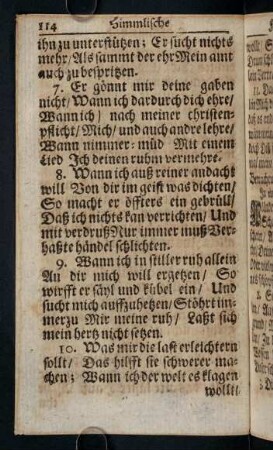 114 Himmlische
ihn zu unterstützen; Er sucht nichts
mehr/ Als sammt der ehr Mein amt
auch zu bespritzen.
7. Er gönnt mir deine gaben
nicht/ Wann ich dardurch dich ehre/
Wann ich/ nach meiner christen-
pflicht/ Mich/ und auch andre lehre/
Wann nimmer-müd Mit einem
Lied Ich deinen ruhm vermehre.
8. Wann ich auß reiner andacht
will Von dir im geist was dichten/
So macht er öffters ein gebrüll/
Daß ich nichts kan verrichten/ Und
mit verdruß Nur immer muß Ver-
haßte händel schlichten.
9. Wann ich in stiller ruh allein
An dir mich will ergetzen/ So
wirfft er säyl und kübel ein/ Und
sucht mich auffzuhetzen/ Stöhrt im-
merzu Mir meine ruh/ Laßt sich
mein hertz nicht setzen.
10. Was mir die last erleichtern
sollt/ Das hilfft sie schwerer ma-
chen; Wann ich der welt es klagen
wollt/